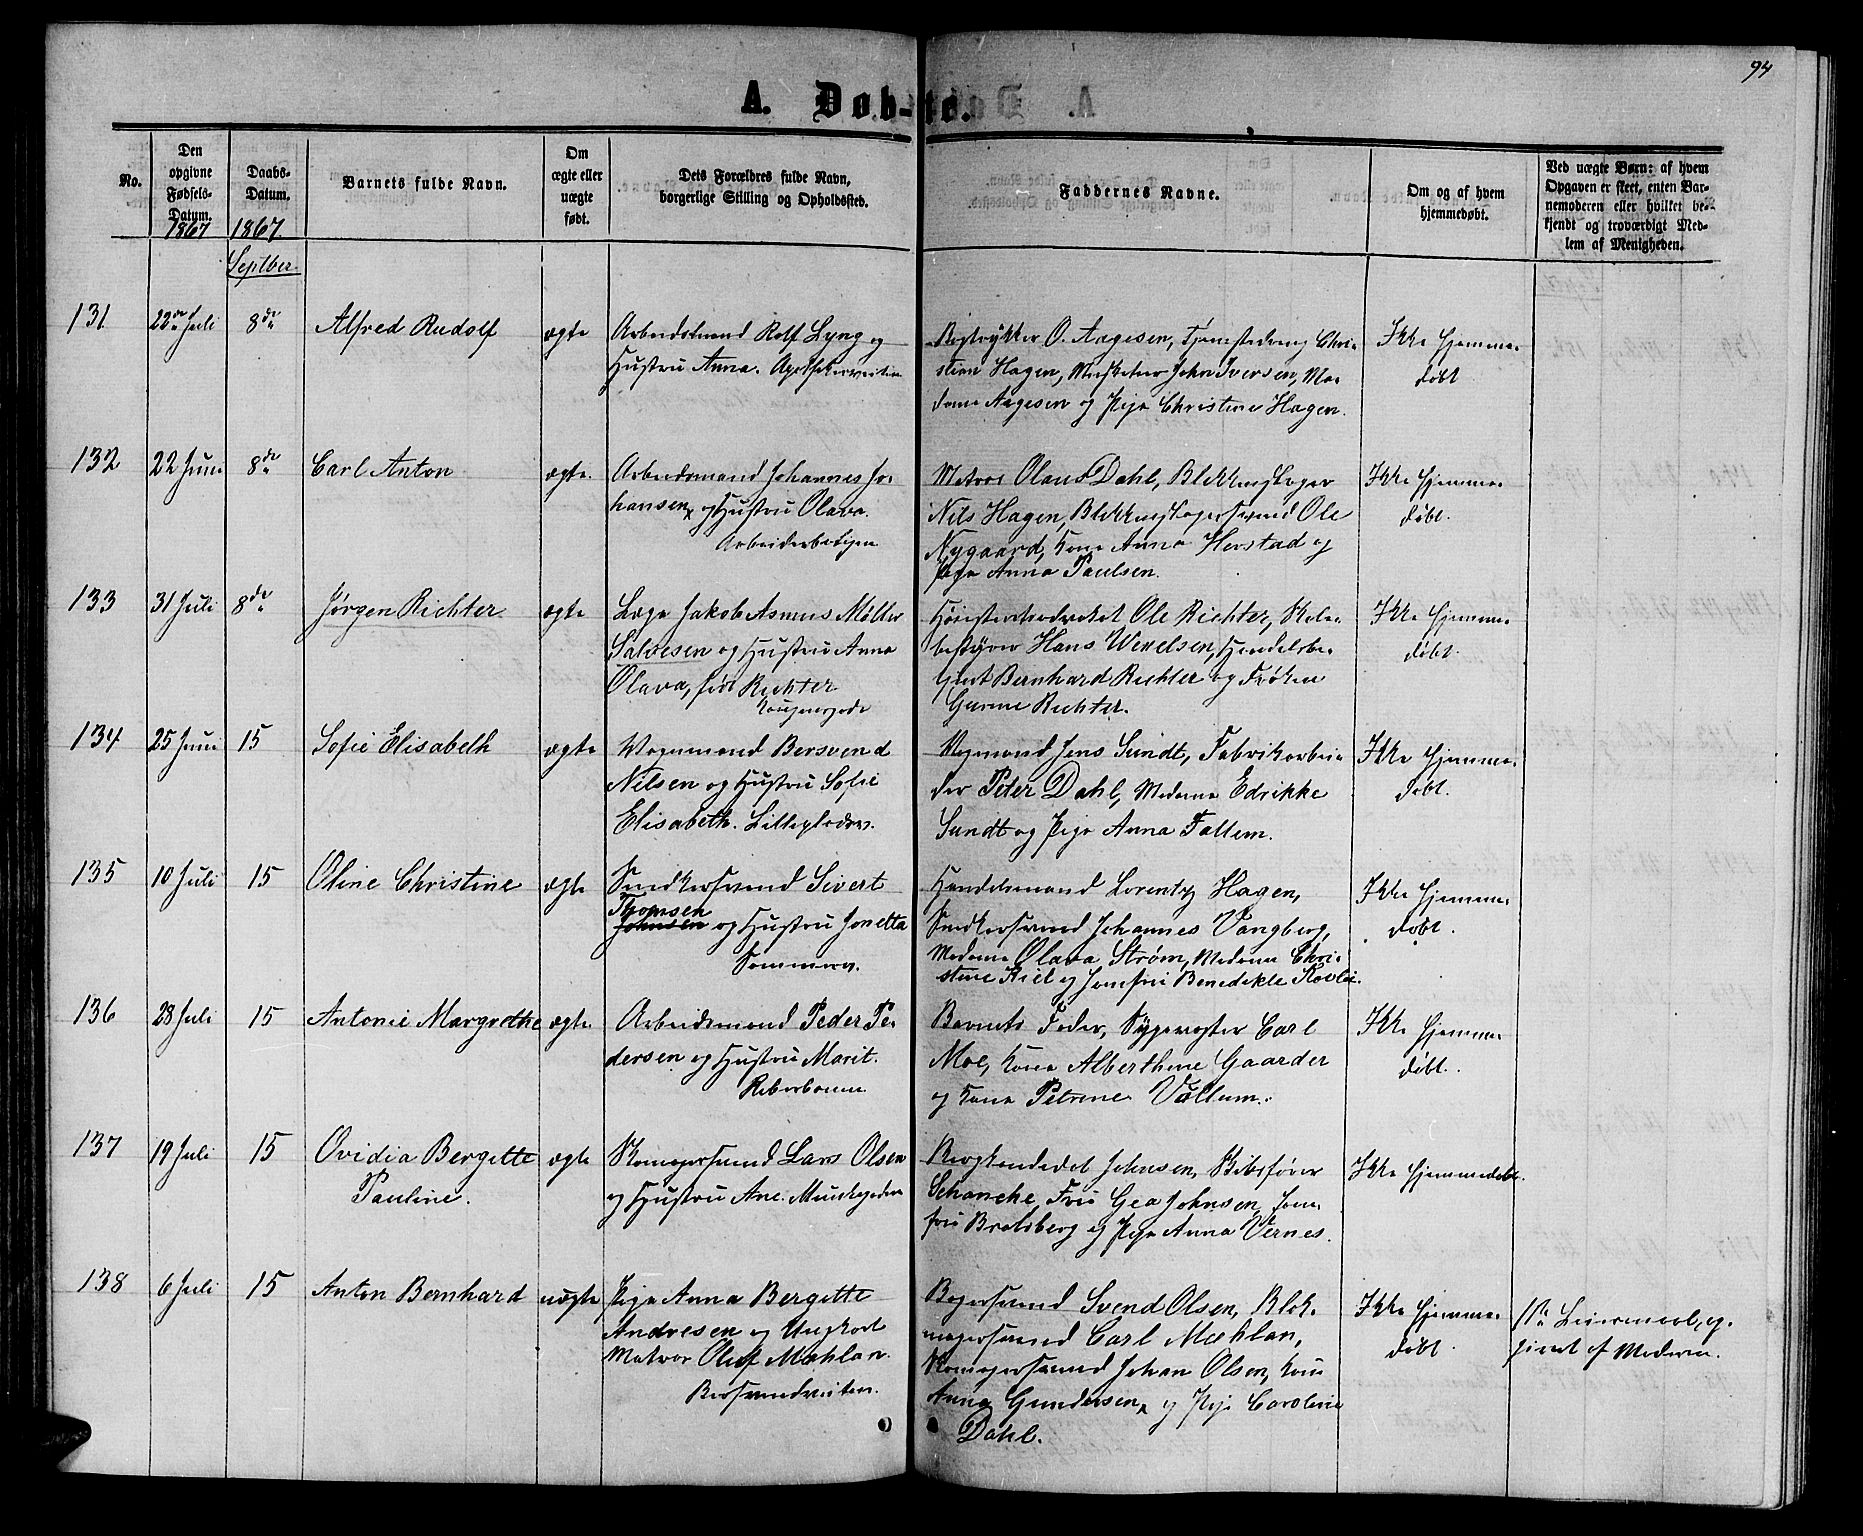 94
A. Døb-te.
No.
Den opgivne Fødsels-Datum.
1867
Daabs-Datum.
1867
Septber
Barnets fulde Navn.
Om ægte eller uægte født.
Dets Forældres fulde Navn, borgerlige Stilling og Opholdssted.
Faddernes Navne.
Om og af hvem hjemmedøbt.
Ved uægte Børn: af hvem Opgaven er skeet, enten Barnemoderen eller hvilket bekjendt og troværdigt Medlem af Menigheden.
131
22de Juli
8de
Alfred Rudolf
ægte
Arbeidsmand Rolf Lyng og
Hustru Anna. Apothekerveiten
Bogtrykker O. Aagesen, Chri-
stian Hagen, Musketeer John Iversen, Ma-
dame Aagesen og Pige Christine Hagen.
Ikke hjemme-
døbt
132
22 Juni
8de
Carl Anton
ægte.
Arbeidsmand Johannes Jo-
hansen og Hustru Olava.
Matros Olaus Dahl, Blikkenslager
Nils Hagen, Blikkenslagersvend Ole
Nygaard, Kone Anna Hevstad og
Pige Anna Paulsen.
Ikke hjemme-
døbt.
133
31 Juli
8de
Jørgen Richter
ægte
Læge Jakob Asmus Møller
Salvesen og Hustru Anna
Olava, født Richter
Kongensgade
Høiesteretsadvokat Ole Richter, Skole-
bestyrer Hans Wexelsen, Handelsbe-
tjent Bernhard Richter og Frøken
Richter.
Ikke hjemme-
døbt.
134
25 Juni
15
Sofie Elisabeth
ægte
Vognmand Bersvend
Nilsen og Hustru Sofie
Elisabeth.
Vognmand Jens Sundt, Fabrikarbei-
der Peter Dahl, Madame Edrikke
Sundt og Pige Anna Fallem.
Ikke hjemme-
døbt.
135
10 Juli
15
Oline Christine
ægte
Snedkersvend Sivert
Thomsen
Johnsen og Hustru Jonetta
Handelsmand Lorentz Hagen,
Snedkersvend Johannes Vangberg,
Madame Olava Strøm, Madame Chri-
stine Kiel og Jomfru Benedikte
Ikke hjemme-
døbt.
136
28 Juli
15
Antonie Margrethe
ægte
Arbeidsmand Peder Pe-
dersen og Hustru Marit.
Barnets Fader, Sygevogter Carl
Moe, Kone Alberthine Gaarder
og Kone Petrine Vollum.
Ikke hjemme-
døbt.
137
19 Juli
15
Ovidia Bergitte
Pauline.
ægte
Skomagersvend Lars Olsen
og Hustru Ane. Munkegaden
Johnsen, Skibsfører
Schancke, Fru Gea Johnsen, Jom-
fru Bratsberg og Pige Anna Vernes.
Ikke hjemmedøbt.
138
6 Juli
15
Anton Bernhard
uægte
Pige Anna Bergitte
Andresen og Ungkarl
Matros Oluf Mæhlan.
Bersvendveiten.
Bagersvend Svend Olsen, Blok-
magersvend Carl Mæhlan,
Skomagersvend Johan Olsen, Kone
Anna Gundersen, og Pige Caroline
Dahl.
Ikke hjemme-
døbt.
1ste Leiermaal, op-
givet af Moderen.